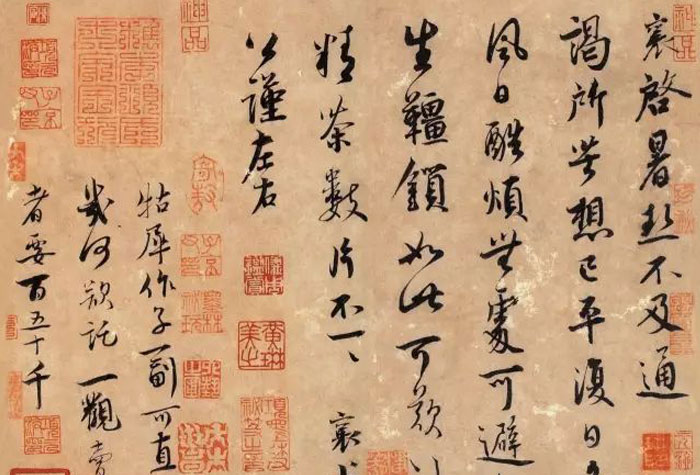 襄啓暑熱不及通
謁所苦想已平復日
風日酷煩無處可避
生韁鎖如此可歎
精茶數片不一一 襄上
公謹左右
牯犀作子一副可直
幾何欲託一觀賣
者要百五十千
神品
黄琳美之